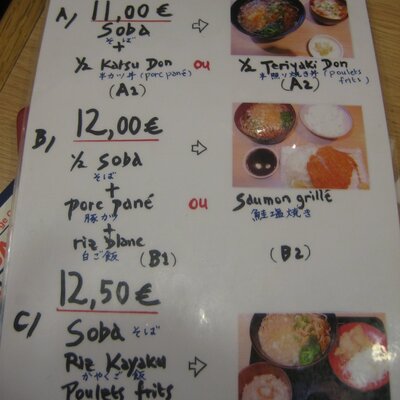 A/ 11,00€
Soba
そば
+
½ Katsu Don ou ½ Teriyaki Don
半カツ丼 (porc pané) 半照り焼き丼 (poulets frits)
(A1) (A2)
B/ 12,00€
½ Soba
そば
+
porc pané ou Saumon grillé
豚かつ 鮭塩焼き
+
riz blanc
白ご飯 (B1) (B2)
12,50€
C/ Soba そば
Riz Kayaku
かやくご飯
Poulets frits